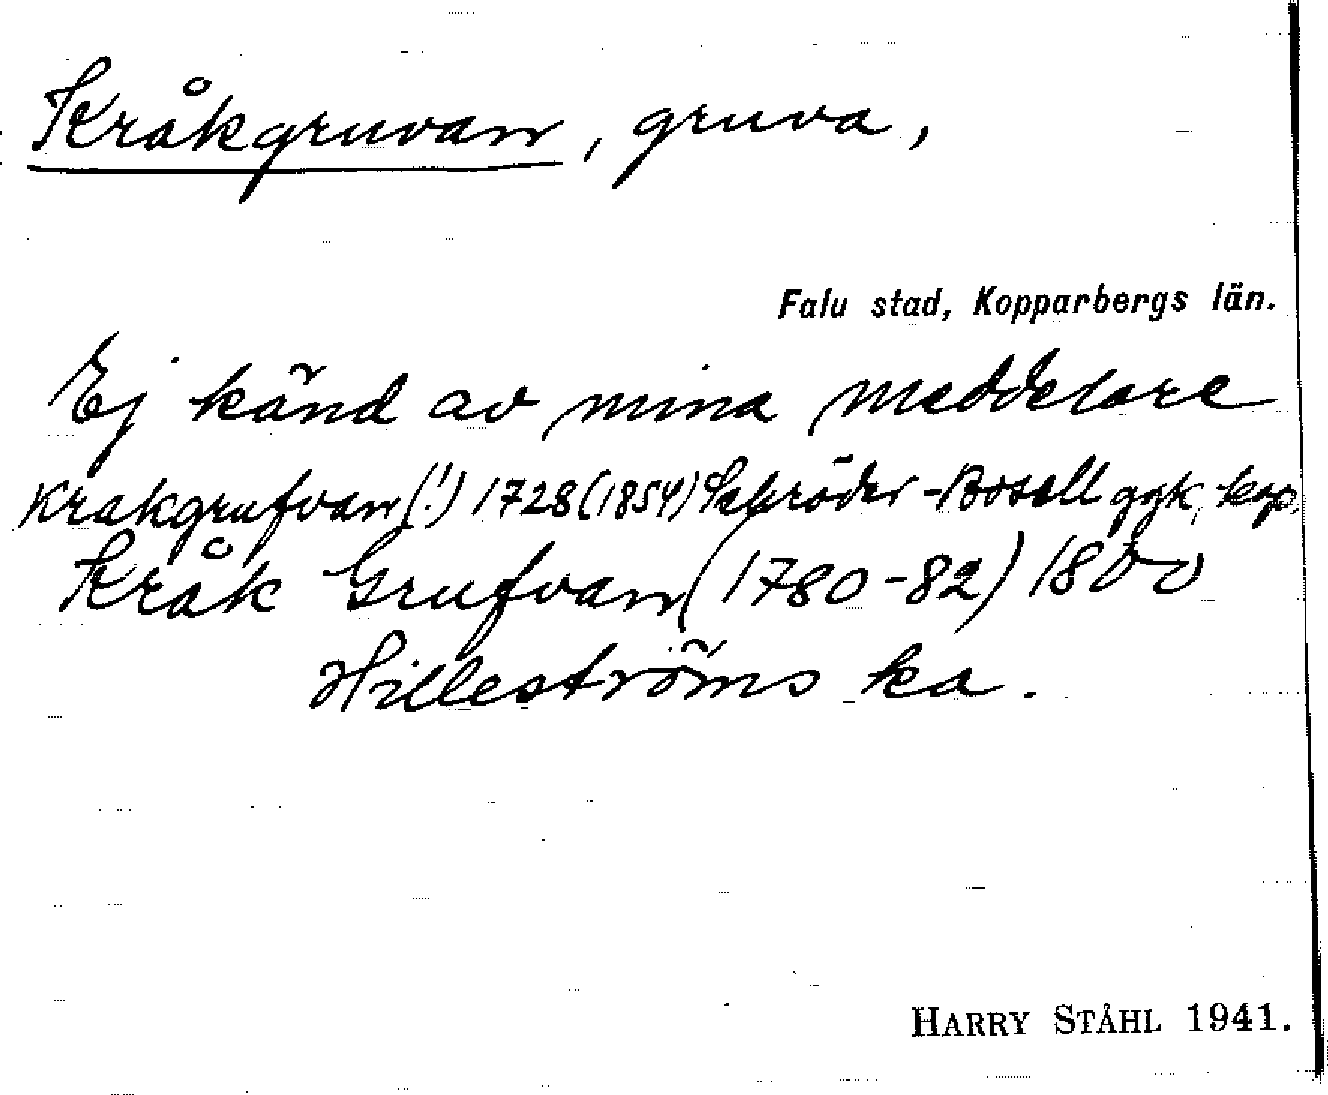 Kråkgruvan, gruva,
Falu stad, Kopparbergs län.
Ej känd av mina meddelare
Krakgrufvan (!) 1728 (1854) Schröder-Bosell ggk, kop.
Kråk Grufvan (1780-82) 1800
Hilleströms ka.
HARRY STÅHL 1941.